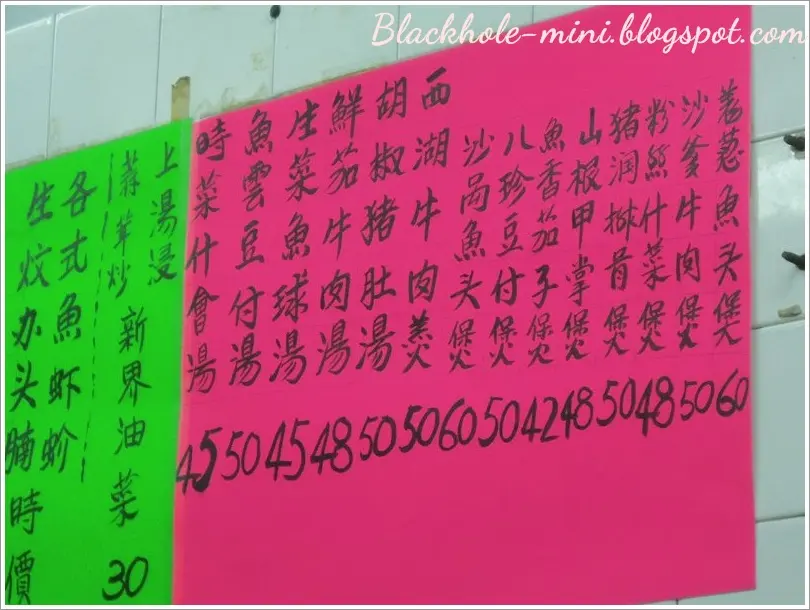 Blackhole-mini.blogspot.com
羗葱魚头煲 60
沙爹牛肉煲 50
粉絲什菜煲 48
猪润排骨煲 50
山根甲掌煲 48
魚香茄子煲 42
八珍豆付煲 50
沙咼魚头煲 60
西湖牛肉羹 50
胡椒猪肚湯 50
鮮茄牛肉湯 48
生菜魚球湯 45
魚雲豆付湯 50
時菜什會湯 45
上湯浸
蒜茸炒
新界油菜 30
各式魚虾蚧
生炆办头腩
時價